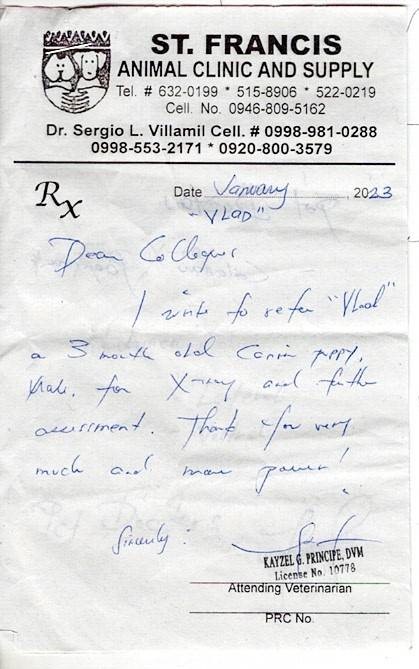 ST. FRANCIS
ANIMAL CLINIC AND SUPPLY
Tel. # 632-0199 * 515-8906 * 522-0219
Cell. No. 0946-809-5162
Dr. Sergio L. Villamil Cell. # 0998-981-0288
0998-553-2171 * 0920-800-3579
Rx
Date January, 2023
"VLAD"
Dear Collegues
I write to refer "Vlad"
a 3 month old Canine puppy,
Male, for X-ray and further
assessment. Thank you very
much and more power!
Sincerely:
KAYZEL G. PRINCIPE, DVM
License No. 10778
Attending Veterinarian
PRC No.